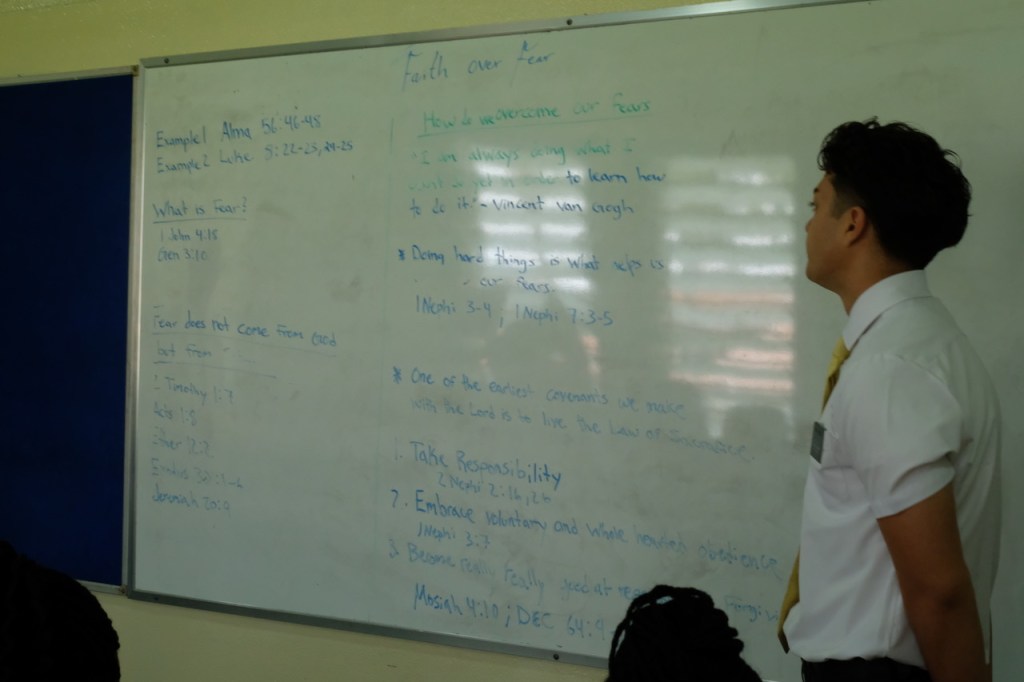 Faith over Fear
Example 1 Alma 56:46-48
Example 2 Luke 5:22-25, 24-25
What is Fear?
1 John 4:18
Gen 3:10
Fear does not come from God
but from
Timothy 1:7
Acts 1:8
Ether 12:2
Exodus
Jeremiah 20:9
How do we overcome our Fears
"I am always doing what I
to learn how
to do it." - Vincent Van Gogh
* Doing hard things is what helps us
our fears.
1 Nephi 3-4 ; 1 Nephi 7:3-5
* One of the earliest covenants we make
with the Lord is to live the Law of
1. Take Responsibility
2 Nephi 2:16, 26
2. Embrace voluntary and whole hearted obedience
1 Nephi 3:7
3. Become really, really good at
Mosiah 4:10 ; D&C 64:9